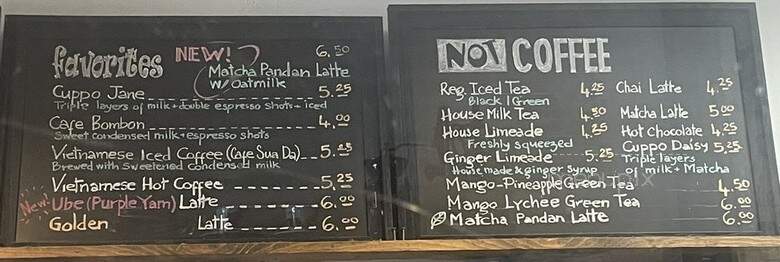 favorites NEW! 6.50
Matcha Pandan Latte
w/ oatmilk
Cuppo Jane 5.25
Triple layers of milk + double espresso shots + iced
Cafe Bombon 4.00
Sweet condensed milk + espresso shots
Vietnamese Iced Coffee (Cafe Sua Da) 5.25
Brewed with sweetened condensed milk
Vietnamese Hot Coffee 5.25
New! Ube (Purple Yam) Latte 6.00
Golden Latte 6.00
NOT COFFEE
Reg. Iced Tea 4.25
Black | Green
House Milk Tea 4.50
House Limeade 4.25
Freshly squeezed
Ginger Limeade 5.25
House made & ginger syrup
Chai Latte 4.25
Matcha Latte 5.00
Hot Chocolate 4.25
Cuppo Daisy 5.25
Triple layers
of milk + Matcha
Mango-Pineapple Green Tea 4.50
Mango Lychee Green Tea 6.00
Matcha Pandan Latte 6.00